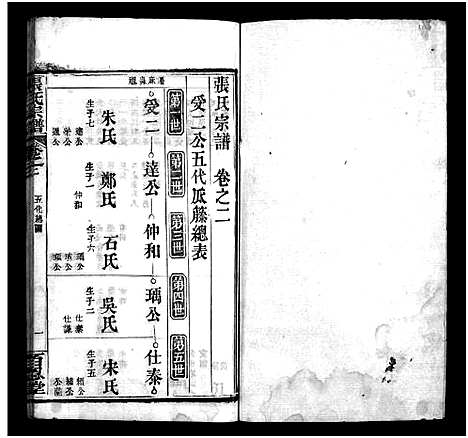 張氏宗譜 卷之二
受二公五代瓜藤總表
第一世
第二世
第三世
第四世
第五世
受二—達公—仲和—瑀公—仕泰
朱氏
生子七
達公
鄭氏
生子一
仲和
石氏
生子六
瑀公
吳氏
生子二
仕泰
仕謙
宋氏
生子五
張氏宗譜
卷之二
五代總圖
一
百忍堂